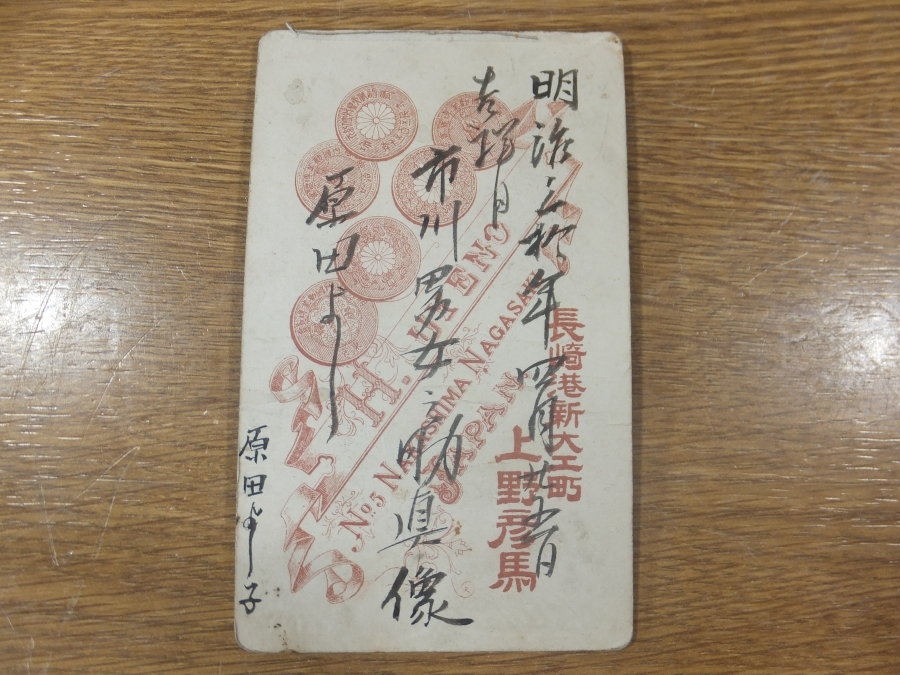 明治三拾年四月廿五日
吉祥月
市川男女之助真像
原田よし
原田よし子
長崎港新大工町
上野彦馬
H. UENO
No. 5 NAKASHIMA NAGASAKI
JAPAN